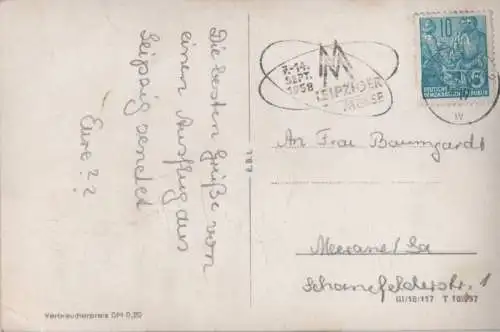 Die besten Grüße von
einen Ausflug aus
Leipzig sendet
Eure ? ?
7.-14.
SEPT.
1958
LEIPZIGER
MESSE
10
DEUTSCHE
DEMOKRATISCHE REPUBLIK
An Frau Baumgardt
Meerane/Sa
Schönefelderstr. 1
GI/18/117 T 10/57
Verbraucherpreis DM 0,20